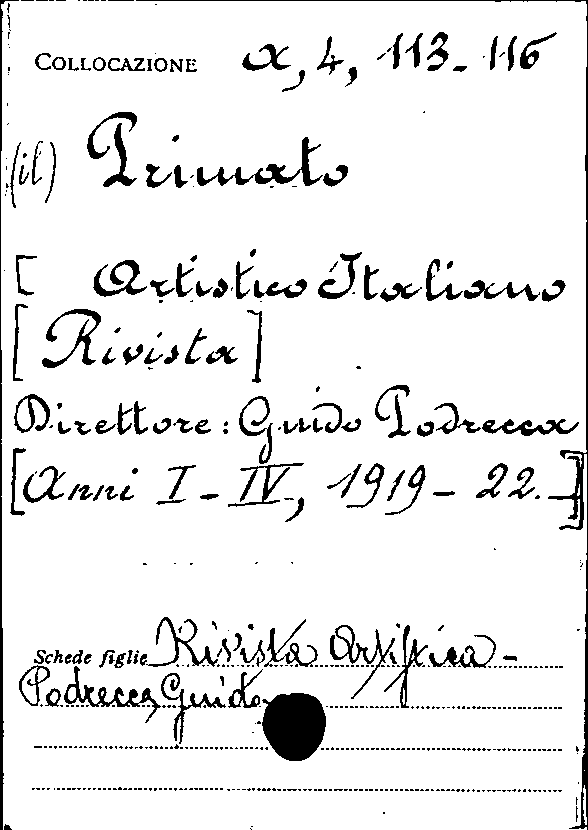 COLLOCAZIONE α, 4, 113-116
(il) Primato
[ Artistico Italiano
[Rivista]
Direttore: Guido Podrecca
[Anni I-IV, 1919-22.-]
Schede figlie Rivista Artistica -
Podrecca, Guido